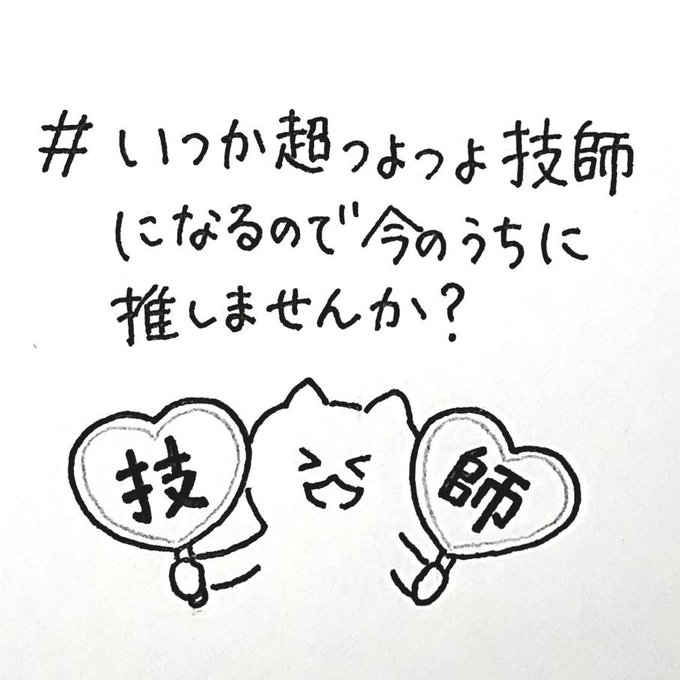 #いつか超つよつよ技師
になるので今のうちに
推しませんか?
技
師